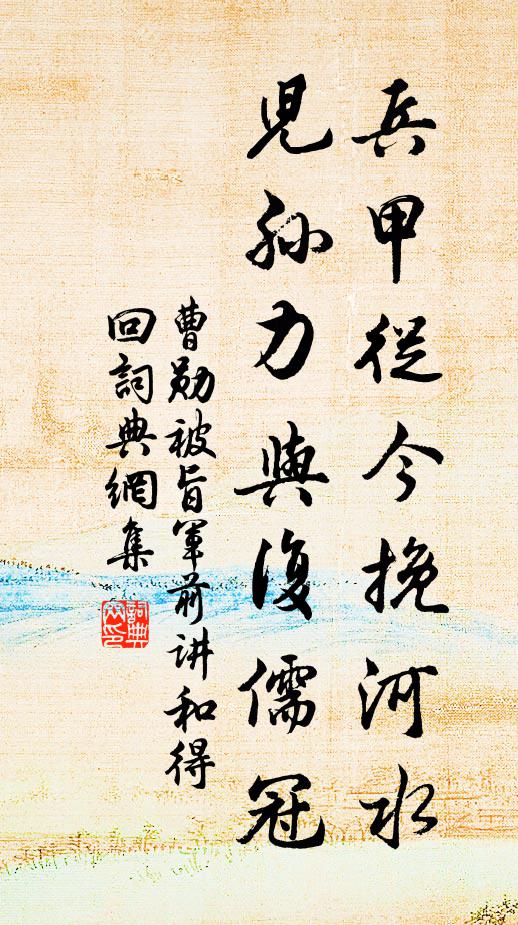 兵甲從今挽河水
児孫力與復儒冠
曹勛被旨軍前讲和得
回詞典網集
詞典
网印